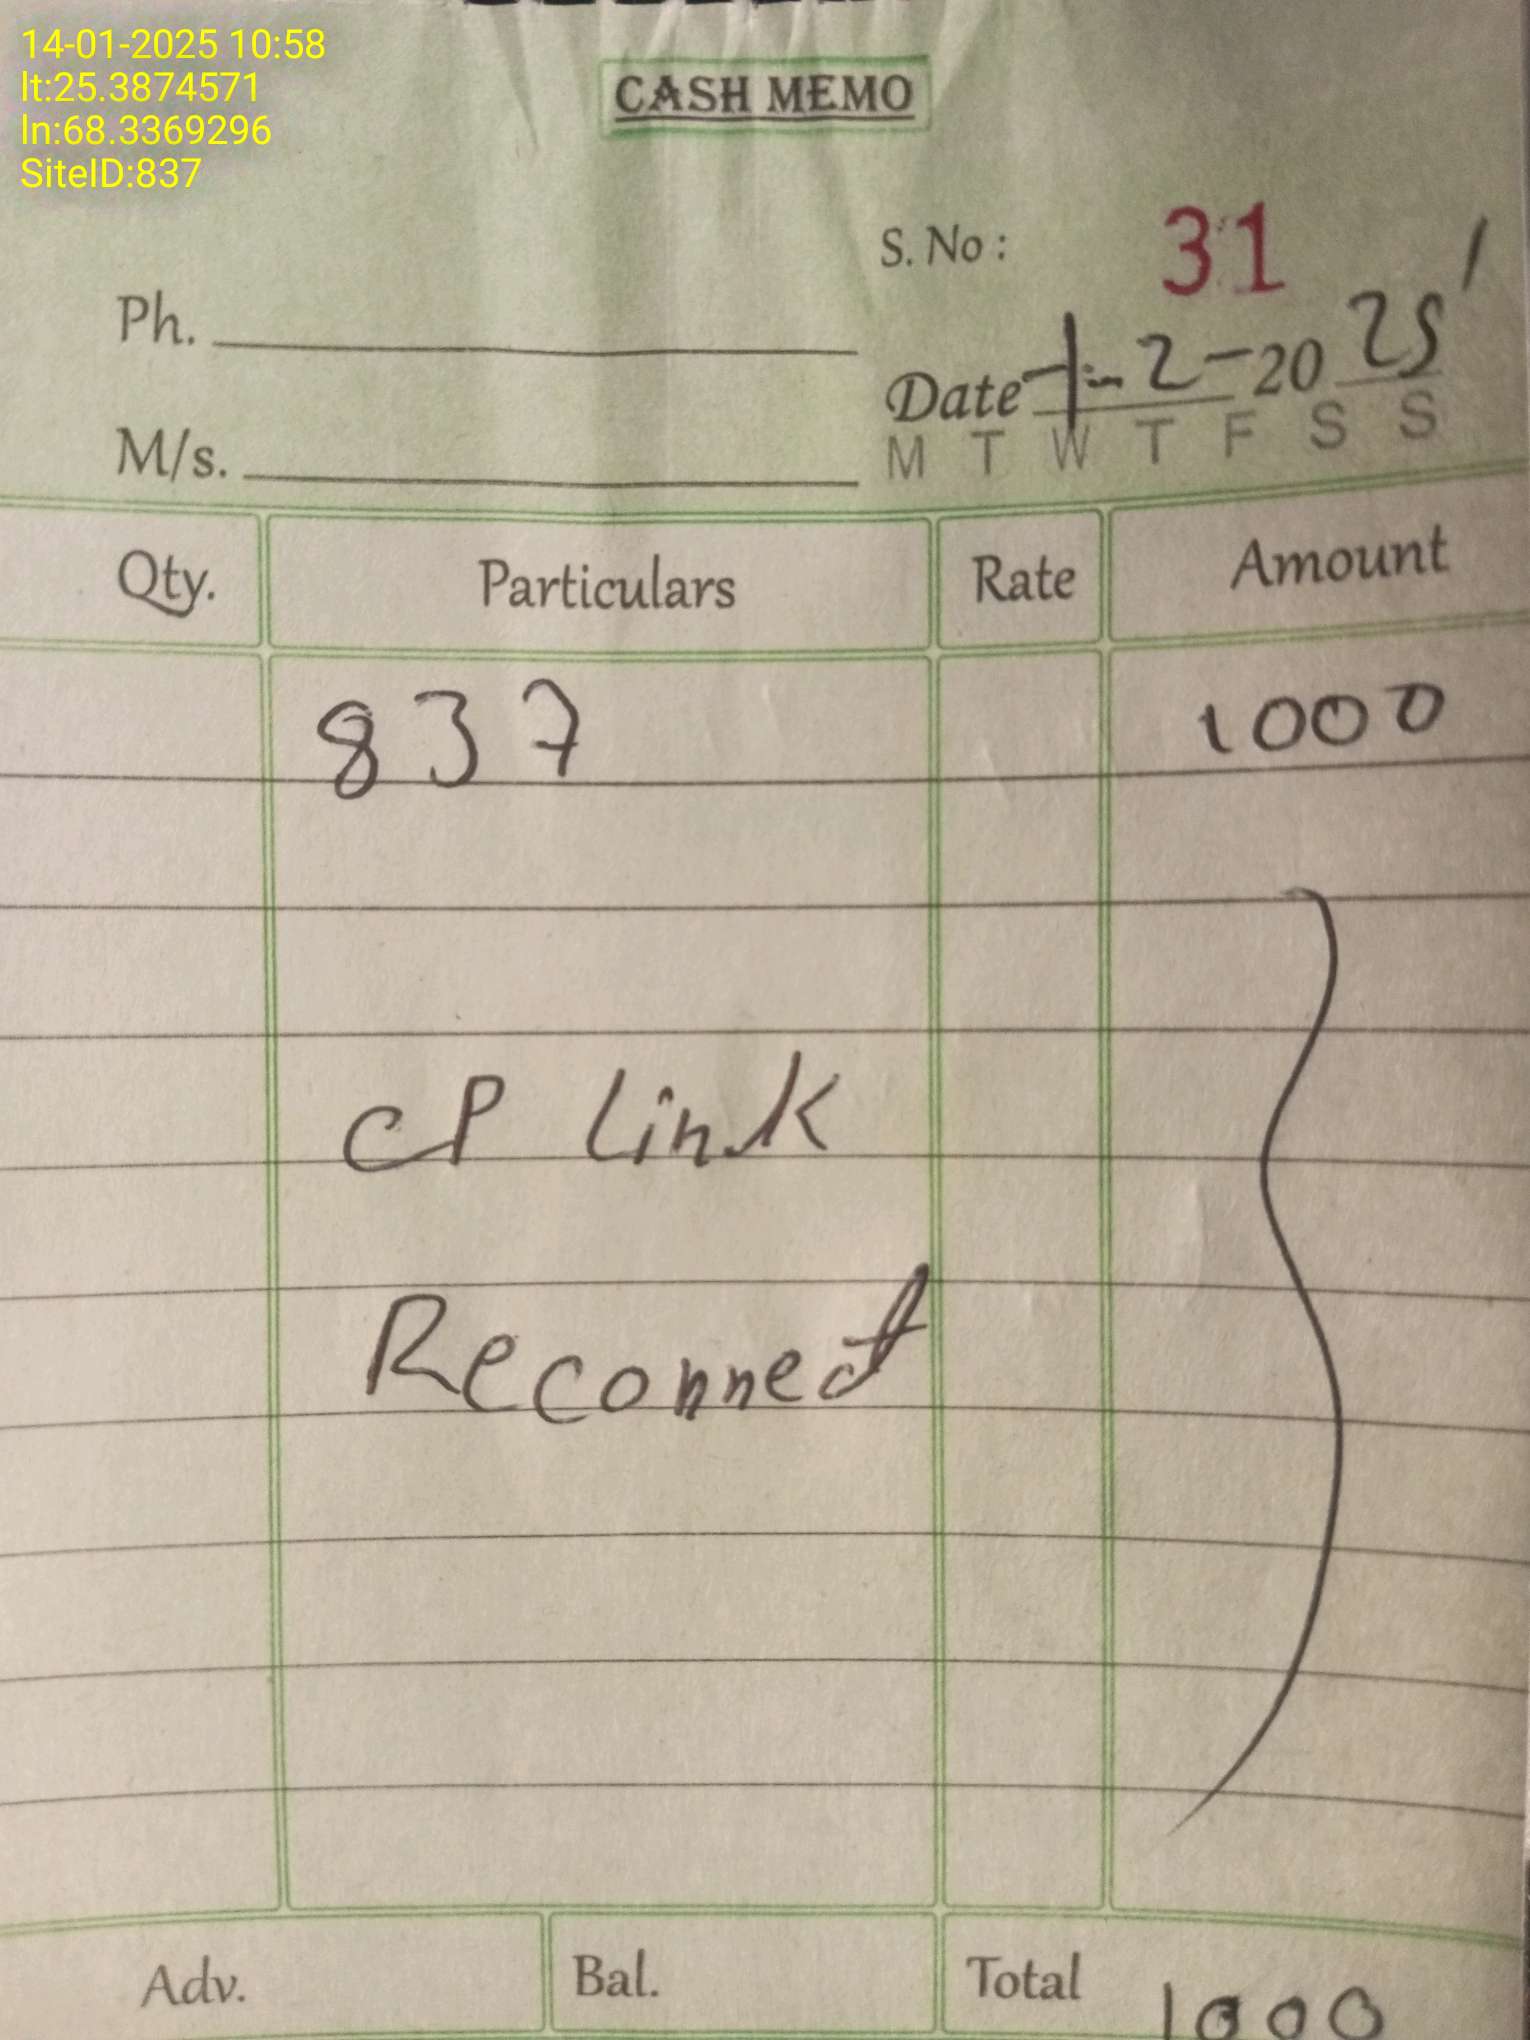 14-01-2025 10:58
lt:25.3874571
ln:68.3369296
SiteID:837
CASH MEMO
S. No : 31
Ph.
Date 1-2-2025
M/s.
M T W T F S S
Qty. Particulars Rate Amount
837 1000
CP Link
Reconnect
Adv. Bal. Total 1000